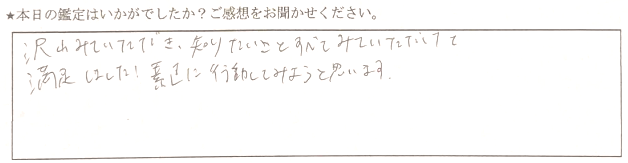 ★本日の鑑定はいかがでしたか？ご感想をお聞かせください。
沢山みていただき、知りたいことすべてみていただけて
満足しました！素直に行動してみようと思います。